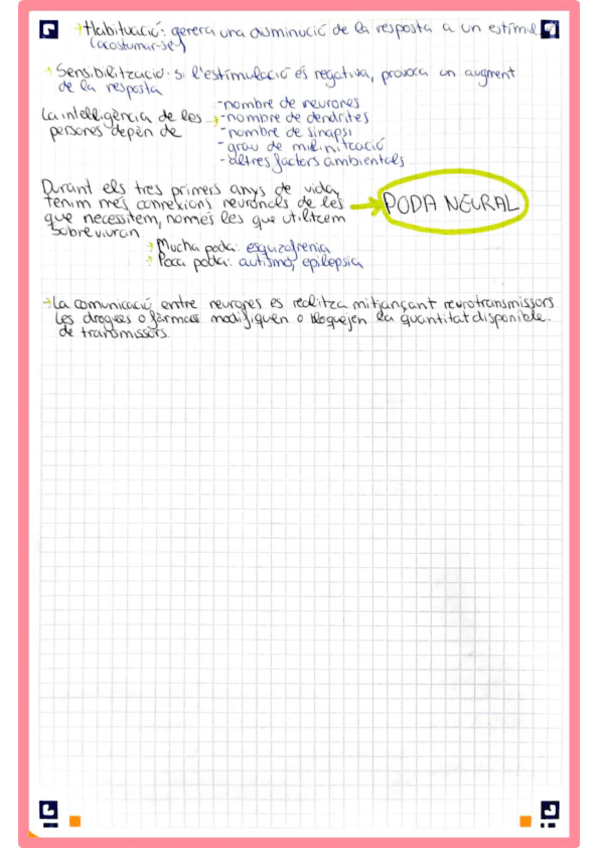 → Habituació: genera una disminució de la resposta a un estímul
(acostumar-se)
→ Sensibilització: si l'estimulació és negativa, provoca un augment
de la resposta
La intel·ligència de les
persones depèn de →
-nombre de neurones
-nombre de dendrites
-nombre de sinapsi
-grau de milinització
-altres factors ambientals
Durant els tres primers anys de vida,
tenim més connexions neuronals de les
que necessitem, només les que utilitzem
sobreviuran
→ PODA NEURAL
→ Mucha poda: esquizofrenia
→ Poca poda: autismo, epilepsia
→ La comunicació entre neurones es realitza mitjançant neurotransmissors
Les drogues o fàrmacs modifiquen o bloquejen la quantitat disponible
de transmissors.